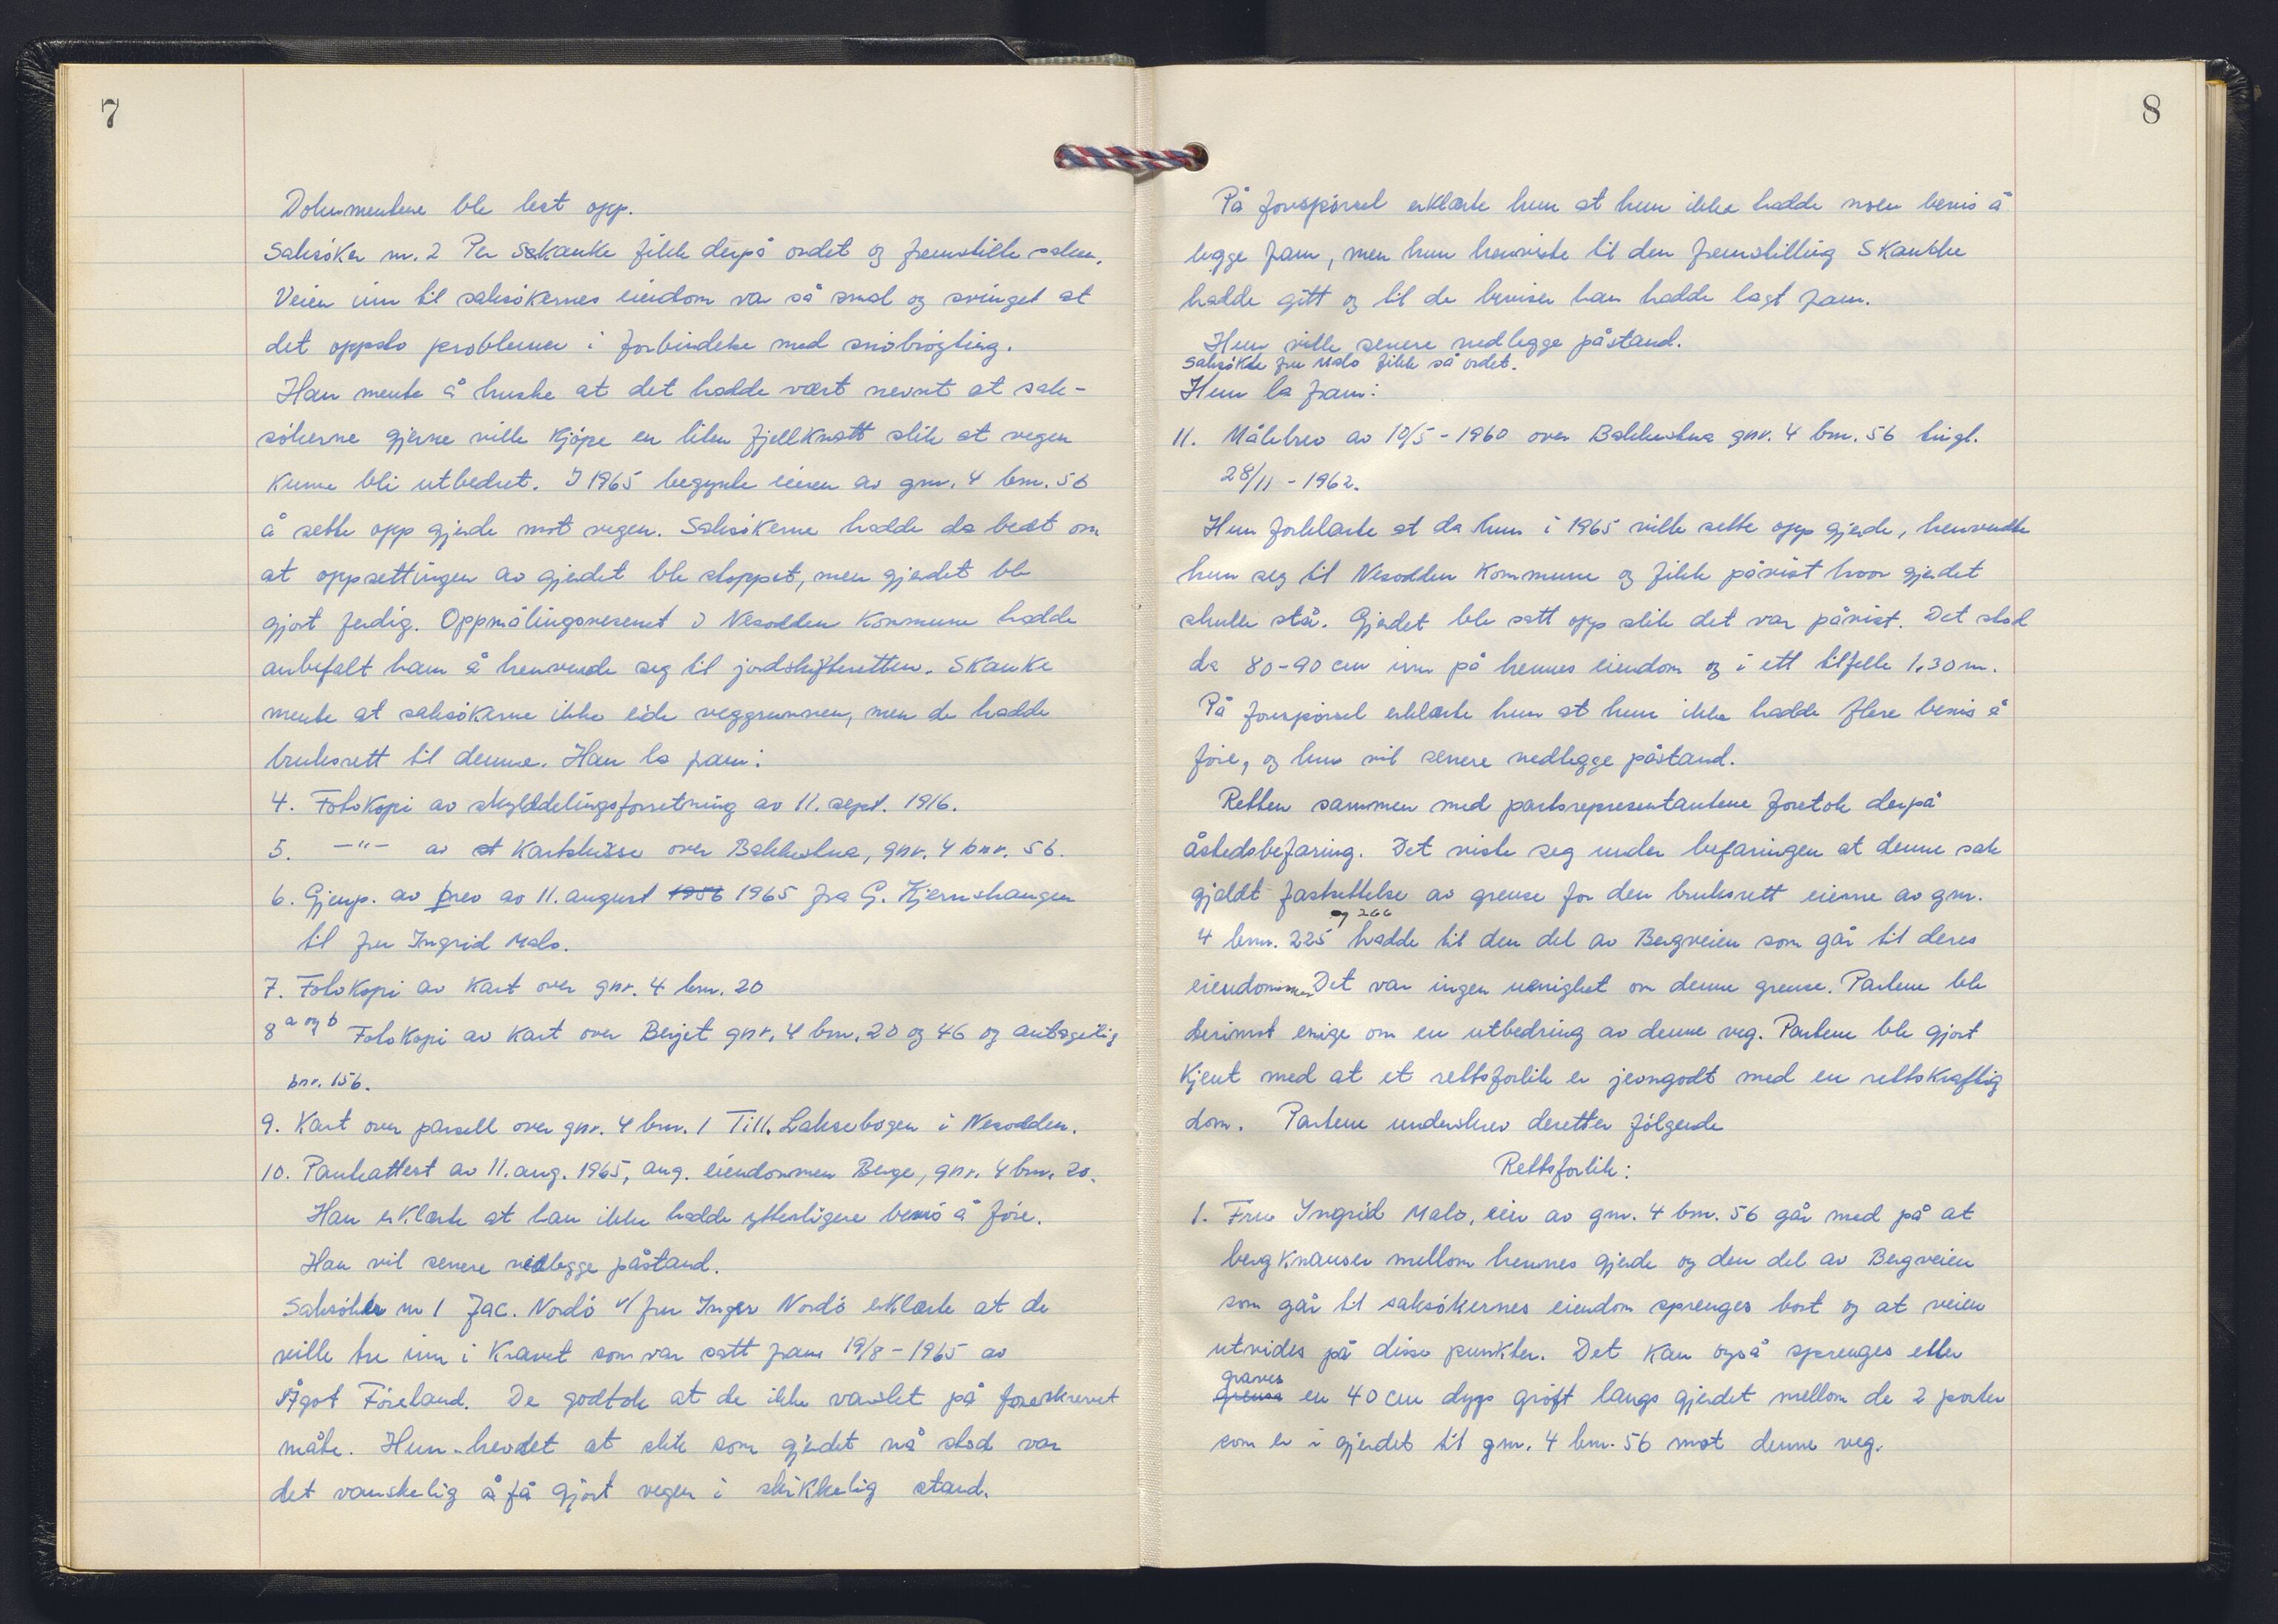 7
Dokumentene ble lest opp.
Saksøker nr. 2 Per Skanke fikk derpå ordet og fremstilte saken.
Veien inn til saksøkernes eiendom var så smal og svinget at
det oppsto problemer i forbindelse med snøbrøyting.
Han mente å huske at det hadde vært nevnt at sak-
søkerne gjerne ville kjøpe en liten fjellknatt slik at vegen
kunne bli utbedret. I 1965 begynte eieren av gnr. 4 bnr. 56
å sette opp gjerde mot vegen. Saksøkerne hadde da bedt om
at oppsettingen av gjerdet ble stoppet, men gjerdet ble
gjort ferdig. Oppmålingsvesenet i Nesodden Kommune hadde
anbefalt ham å henvende seg til jordskifteretten. Skanke
mente at saksøkerne ikke eide veggrunnen, men de hadde
bruksrett til denne. Han la fram:
4. Fotokopi av skylddelingsforretning av 11. sept. 1916.
5. -"- av et Kartskisse over Bakkestua, gnr. 4 bnr. 56.
6. Gjenp. av brev av 11. august 1956 1965 fra G. Kjernshaugen
til fru Ingrid Malo.
7. Fotokopi av Kart over gnr. 4 bnr. 20
8 a og b Fotokopi av Kart over Berget gnr. 4 bnr. 20 og 46 og antagelig
bnr. 156.
9. Kart over parsell over gnr. 4 bnr. 1 Till. Laksebogen i Nesodden.
10. Panteattest av 11. aug. 1965, ang. eiendommen Berge, gnr. 4 bnr. 20.
Han erklærte at han ikke hadde ytterligere bevis å føre.
Han vil senere nedlegge påstand.
Saksøker nr 1 Jac. Nordö v/ fru Inger Nordö erklærte at de
ville tre inn i Kravet som var satt fram 19/8 - 1965 av
Ågot Föreland. De godtok at de ikke varslet på foreskrevet
måte. Hun hevdet at slik som gjerdet nå stod var
det vanskelig å få gjort vegen i skikkelig stand.
8
På forespørsel erklærte hun at hun ikke hadde noen bevis å
legge fram, men hun henviste til den fremstilling Skanke
hadde gitt og til de beviser han hadde lagt fram.
Hun ville senere nedlegge påstand.
Saksøkte fru Malo fikk så ordet.
Hun la fram:
11. Målebrev av 10/5 - 1960 over Bakkestua gnr. 4 bnr. 56 tingl.
28/11 - 1962.
Hun forklarte at da hun i 1965 ville sette opp gjerde, henvendte
hun seg til Nesodden Kommune og fikk påvist hvor gjerdet
skulle stå. Gjerdet ble satt opp slik det var påvist. Det stod
da 80-90 cm inn på hennes eiendom og i ett tilfelle 1.30 m.
På forespørsel erklærte hun at hun ikke hadde flere bevis å
føre, og hun vil senere nedlegge påstand.
Retten sammen med partsrepresentantene foretok derpå
åstedsbefaring. Det viste seg under befaringen at denne sak
gjaldt fastsettelse av grense for den bruksrett eierne av gnr.
4 bnr. 225 og 266 hadde til den del av Bergveien som går til deres
eiendommer. Det var ingen uenighet om denne grense. Partene ble
derimot enige om en utbedring av denne veg. Partene ble gjort
Kjent med at et rettsforlik er jevngodt med en rettskraftig
dom. Partene underskrev deretter følgende
Rettsforlik:
1. Fru Ingrid Malo, eier av gnr. 4 bnr. 56 går med på at
bergknauser mellom hennes gjerde og den del av Bergveien
som går til saksøkernes eiendom sprenges bort og at veien
utvides på disse punkter. Det kan også sprenges eller
graves
grense en 40 cm dyp grøft langs gjerdet mellom de 2 porter
som er i gjerdet til gnr. 4 bnr. 56 mot denne veg.